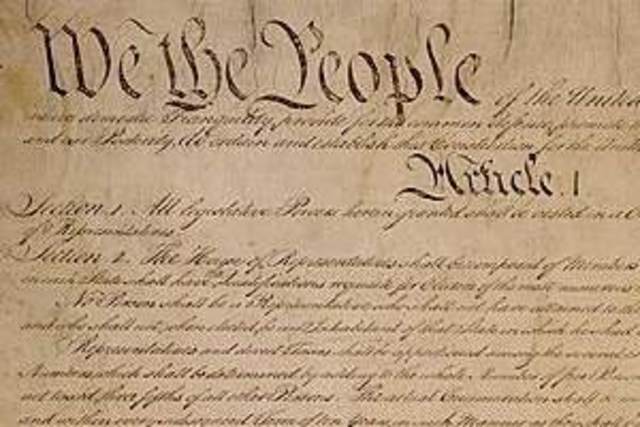 We the People of the United
insure domestic Tranquility, provide for the common defence, promote
and our Posterity, do ordain and establish this Constitution for the United
Article. I
Section. 1. All legislative Powers herein granted shall be vested in a
of Representatives.
Section. 2. The House of Representatives shall be composed of Members
in each State shall have Qualifications requisite for Electors of the most numerous
No Person shall be a Representative who shall not have attained to the
and who shall not, when elected, be an Inhabitant of that State in which he shall
Representatives and direct Taxes shall be apportioned among the several
Numbers, which shall be determined by adding to the whole Number of free
not taxed, three fifths of all other Persons. The actual Enumeration shall be
and within every subsequent Term of ten Years, in such Manner as they shall